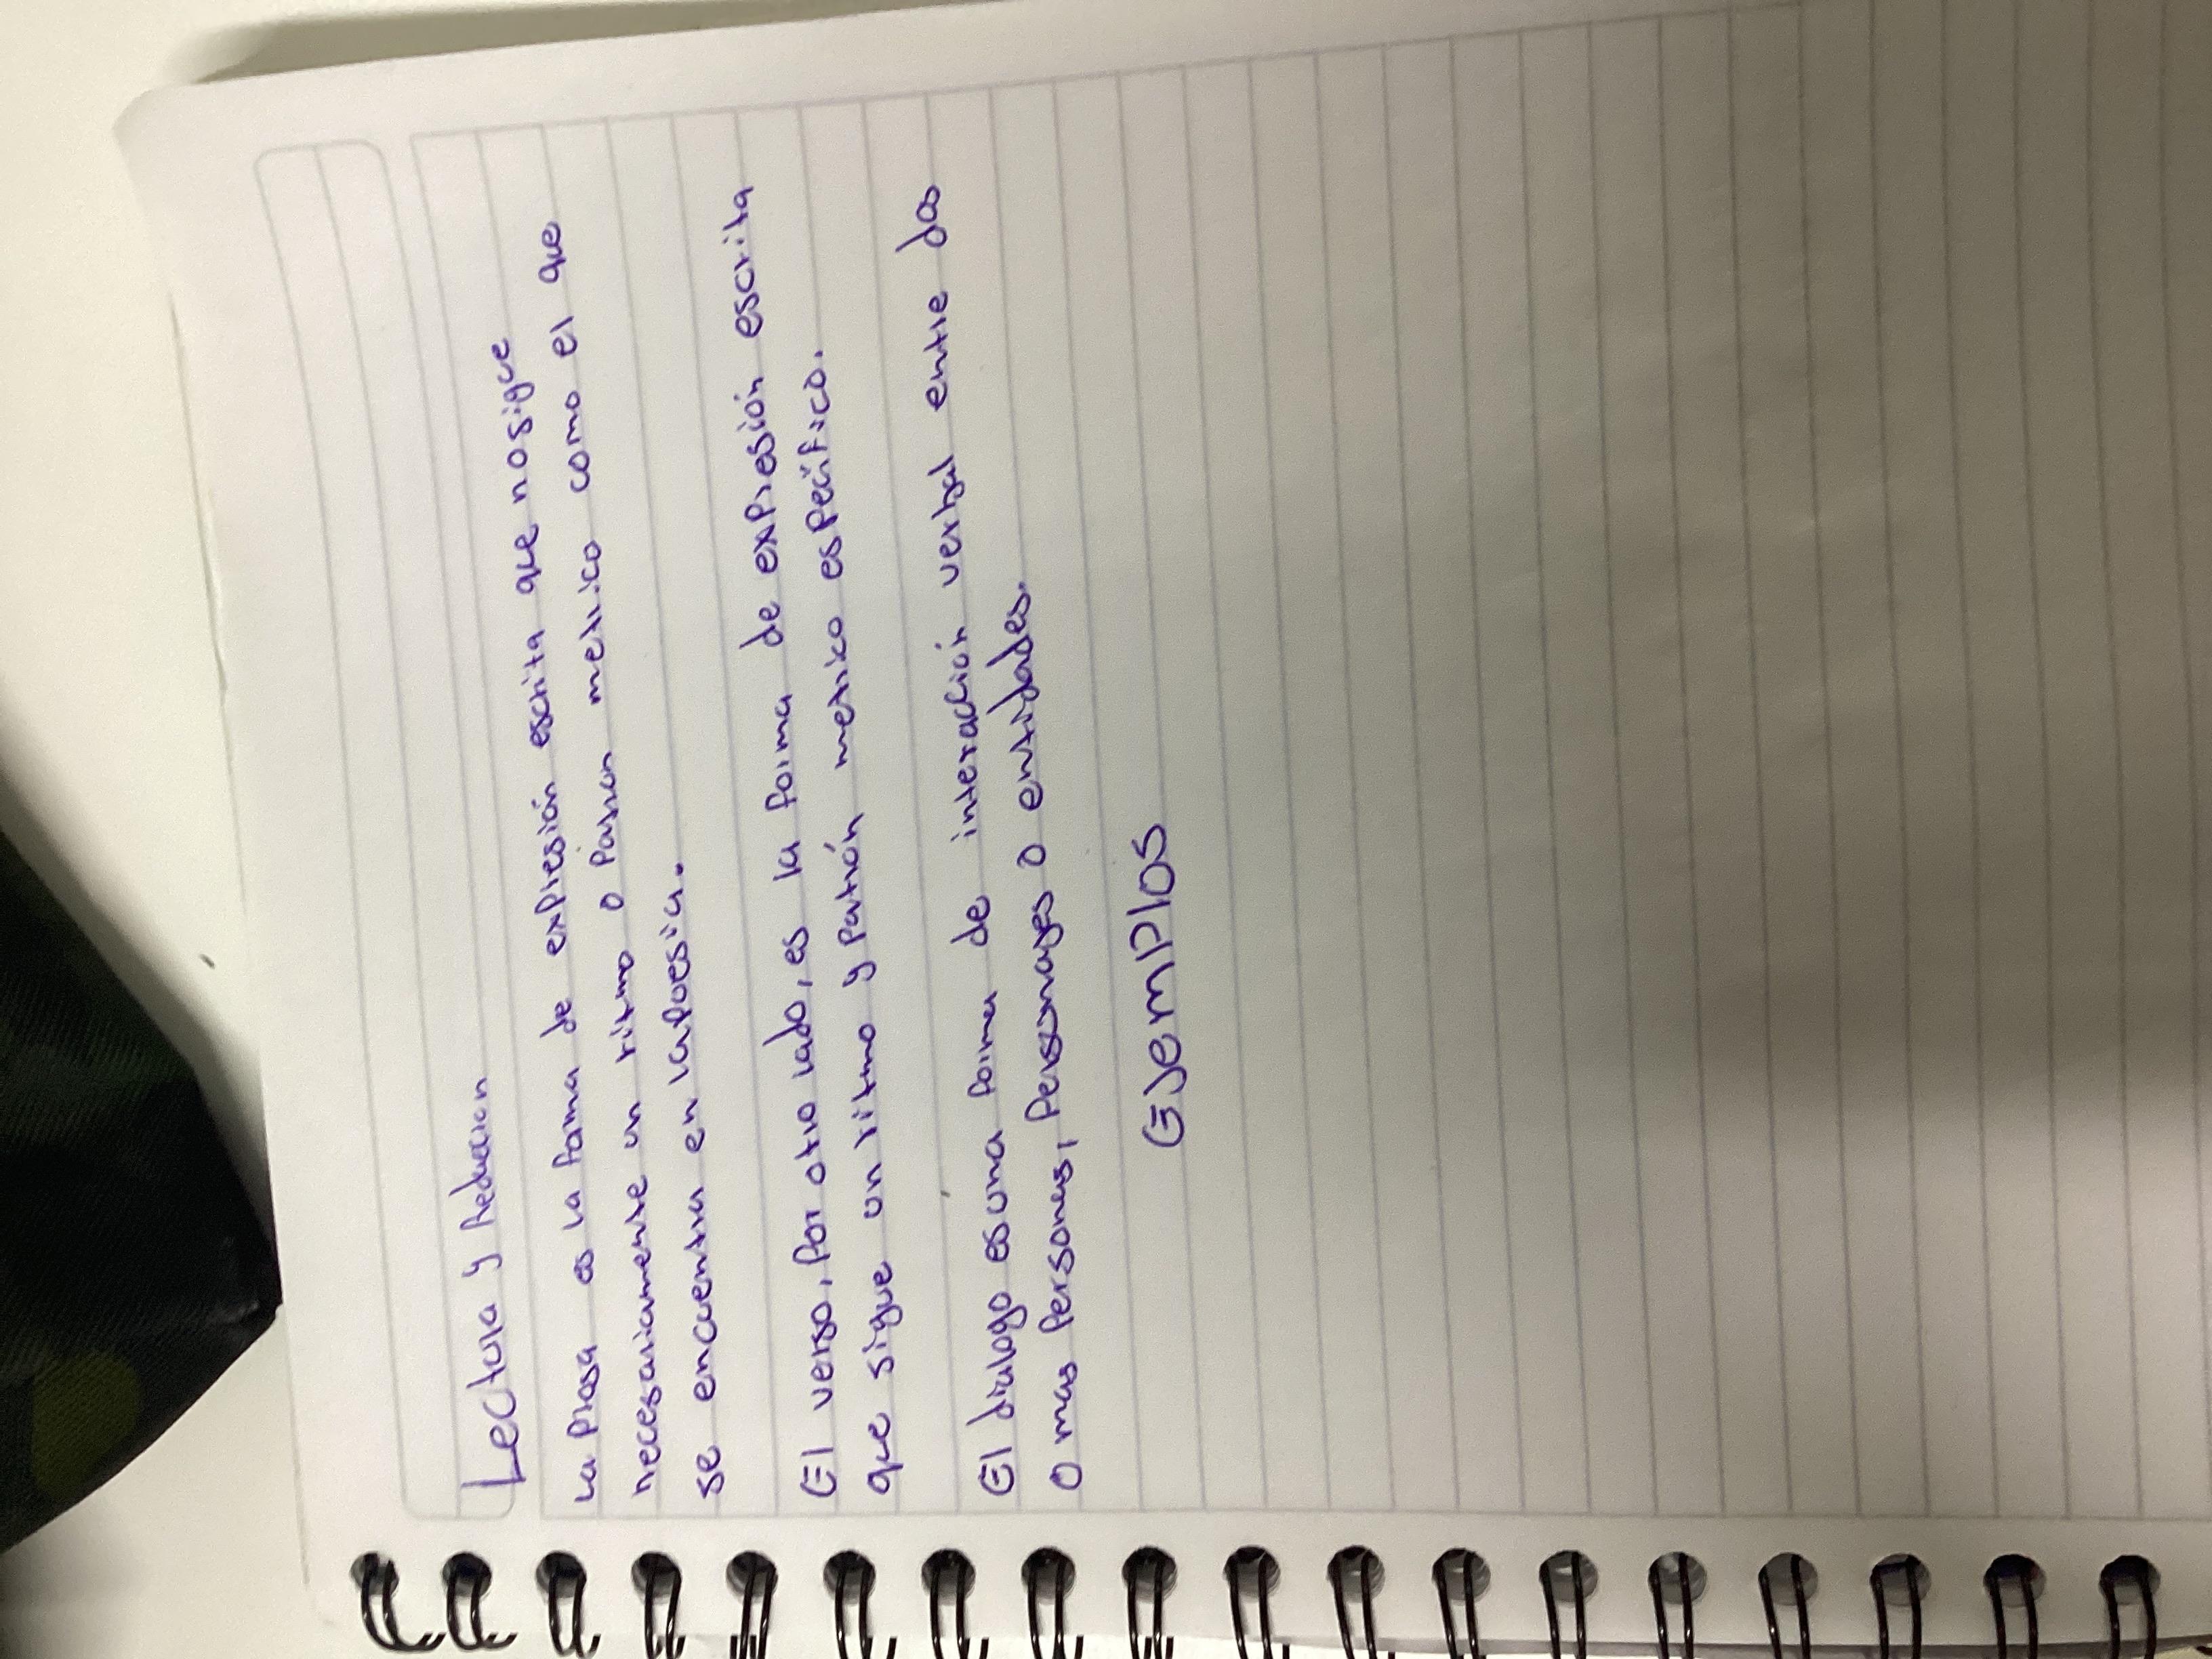 Lectura y Redaccion
La prosa es la forma de expresión escrita que no sigue
necesariamente un ritmo o patron metrico como el que
se encuentra en la poesia.
El verso, por otro lado, es la forma de expresión escrita
que sigue un ritmo y patrón metrico específico.
El dialogo es una forma de interacción verbal entre dos
o mas personas, personajes o entidades.
Ejemplos